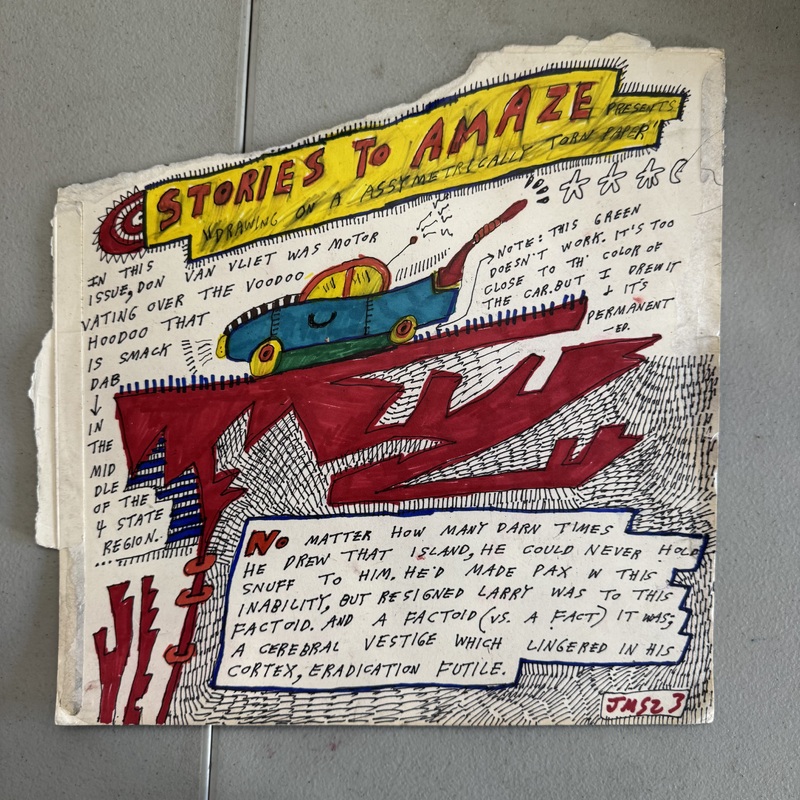 STORIES TO AMAZE
PRESENTS
"DRAWING ON A ASSYMETRICALLY TORN PAPER"
IN THIS
ISSUE, DON VAN VLIET WAS MOTOR
VATING OVER THE VOODOO
HOODOO THAT
IS SMACK
DAB
IN
THE
MID
DLE
OF THE
4 STATE
REGION.
...
NOTE: THIS GREEN
DOESN'T WORK. IT'S TOO
CLOSE TO TH' COLOR OF
THE CAR. BUT I DREW IT
& IT'S
PERMANENT
—ED.
NO MATTER HOW MANY DARN TIMES
HE DREW THAT ISLAND, HE COULD NEVER HOLD
SNUFF TO HIM. HE'D MADE PAX W THIS
INABILITY, BUT RESIGNED LARRY WAS TO THIS
FACTOID. AND A FACTOID (VS. A FACT) IT WAS;
A CEREBRAL VESTIGE WHICH LINGERED IN HIS
CORTEX, ERADICATION FUTILE.